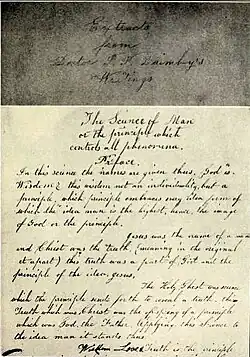 Extracts
from
Doctor P. P. Quimby's
Writings
The Science of Man
or the principle which
controls all phenomena.
Preface.
In this science the names are given thus, God is
Wisdom; this wisdom not an individuality, but a
principle, which principle embraces every idea form of
which the idea man is the highest, hence, the image
of God or the principle.
Jesus was the name of a man
and Christ was the truth (meaning in the original
set apart) this truth was a part of God and the
principle of the idea, Jesus,
The Holy Ghost was
which the principle sends forth to reveal a truth, the
Truth which was Christ was the offspring of a principle
which was God, the Father. Applying this science to
the idea man it stands thus
Wisdom Love & Truth is the principle